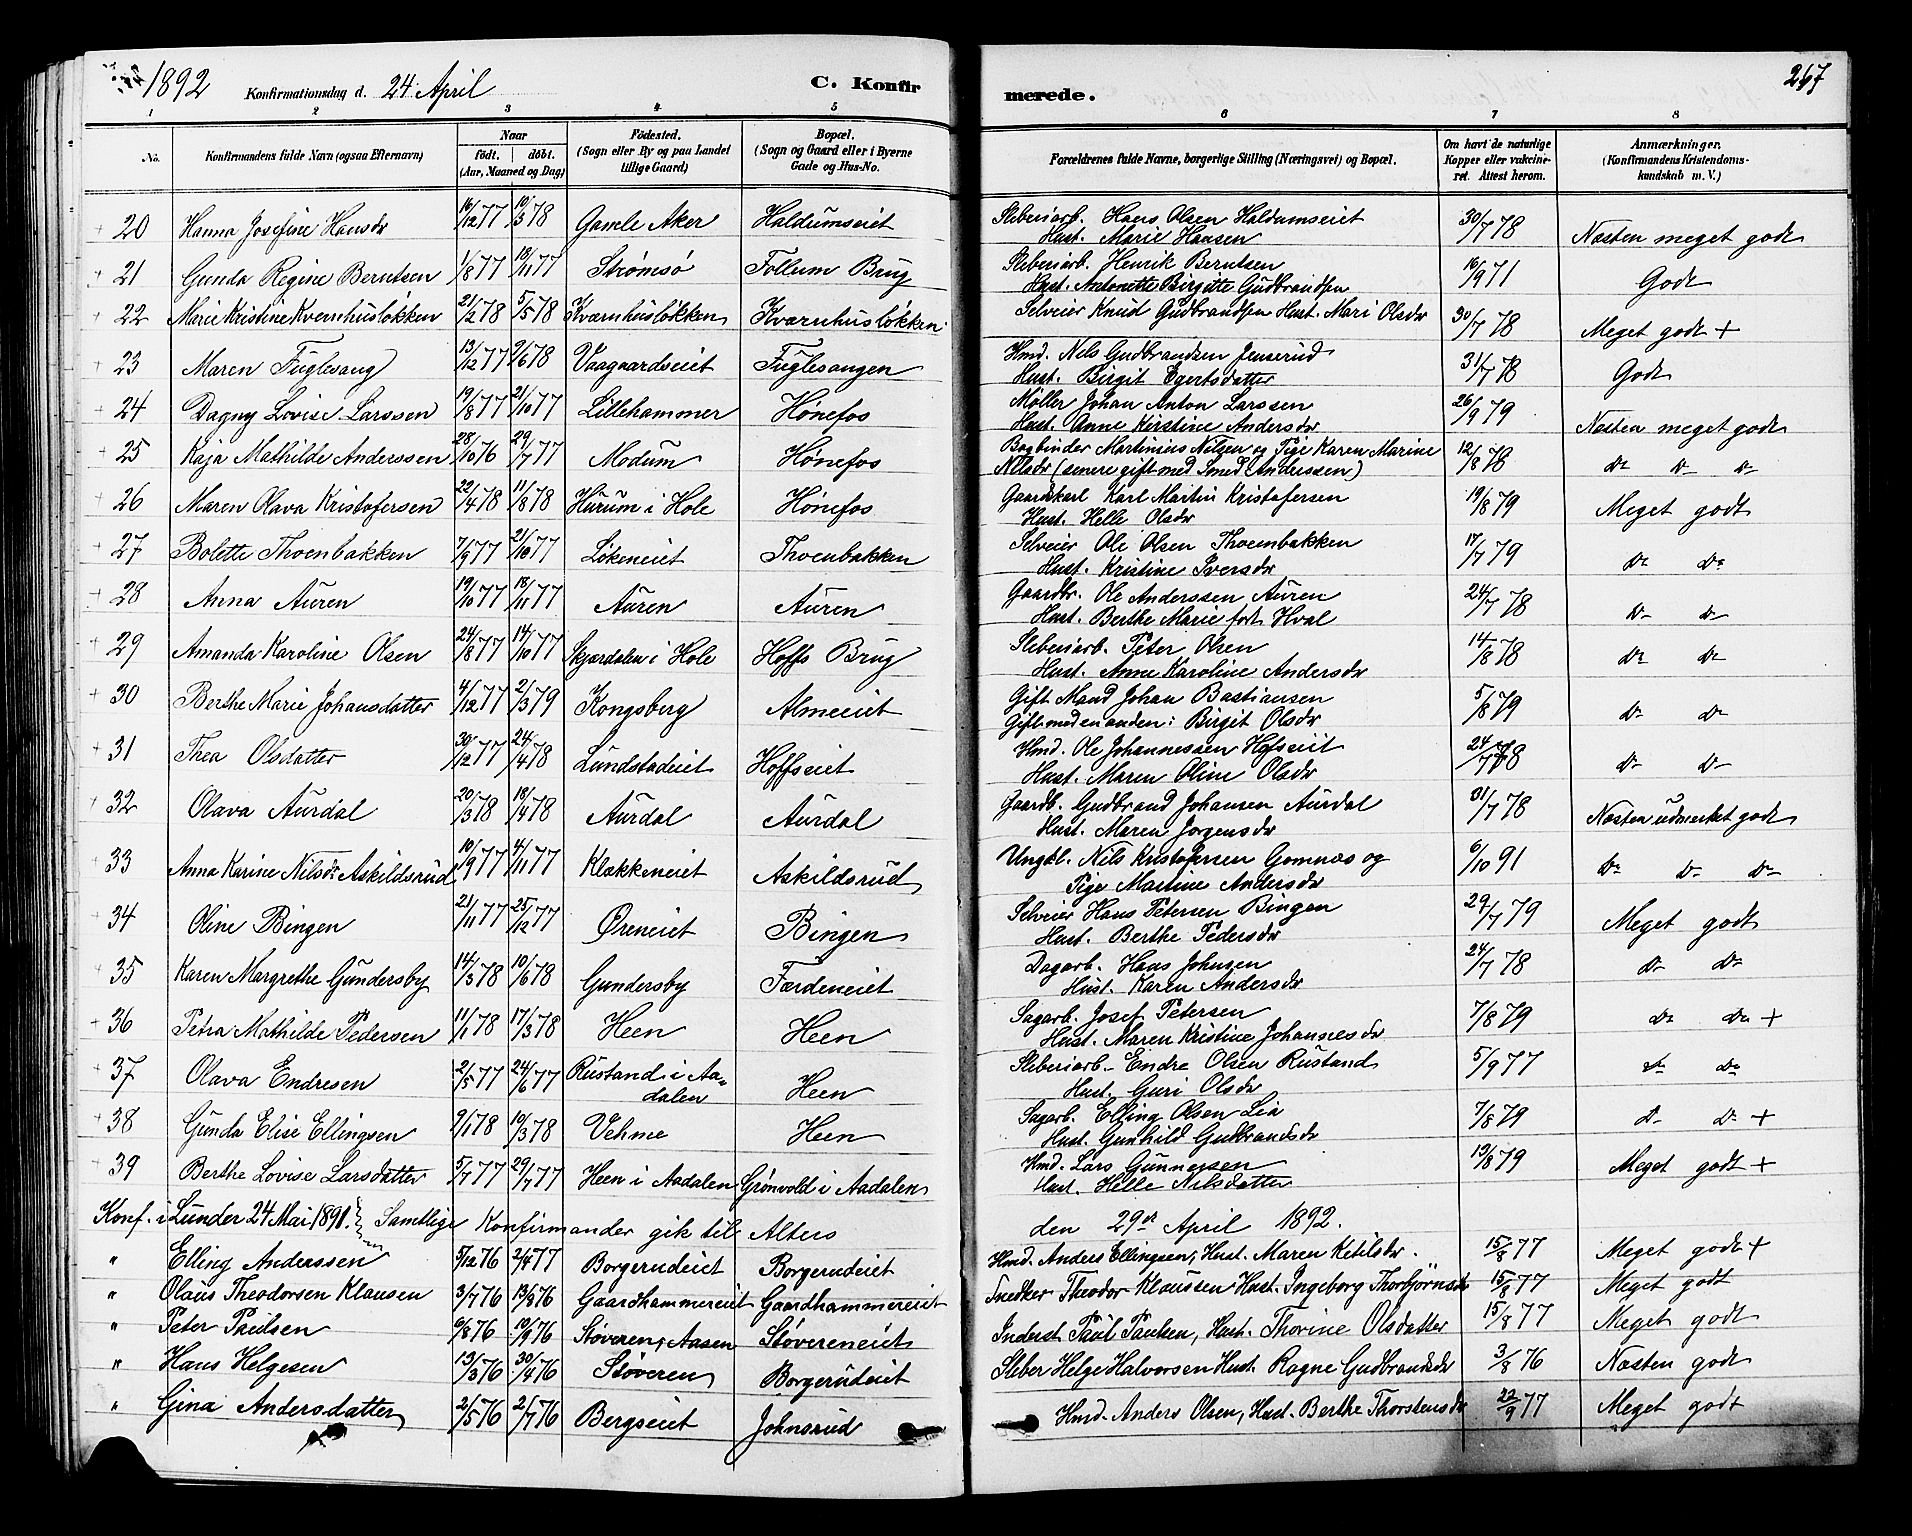 1892 Konfirmationsdag d. 24 April C. Konfirmerede. 267
1 2 3 4 5 6 7 8
No. Konfirmandens fulde Navn (ogsaa Efternavn) Naar født. døbt. (Aar, Maaned og Dag) Födested. (Sogn eller By og paa Landet tillige Gaard) Bopæl. (Sogn og Gaard eller i Byerne Gade og Hus-No. Forældrenes fulde Navne, borgerlige Stilling (Næringsvei) og Bopæl. Om havt de naturlige Kopper eller vakcineret. Attest herom. Anmærkninger. (Konfirmandens Kristendomskundskab m. V.)
20 Hanna Josefine Hansdr 16/12 77 10/3 78 Gamle Aker Haldumseiet Sliberiarb. Hans Olsen Haldumseiet 30/7 78 Næsten meget godt
Hust. Marie Hansen
21 Gunda Regine Berntsen 1/8 77 18/11 77 Strømsø Follum Brug Sliberiarb. Henrik Berntsen 16/9 71 Godt
Hust. Antonette Birgitte Gudbrandsen
22 Marie Kristine Kvernhusløkken 21/2 78 5/5 78 Kvarnhusløkken Kvarnhusløkken Selveier Knud Gudbrandsen Hust. Mari Olsdr 30/7 78 Meget godt +
23 Maren Fuglesang 13/12 77 9/6 78 Vaagaardseiet Fuglesangen Hmd. Nils Gudbrandsen Jenserud 31/7 78 Godt
Hust. Birgit Egertsdatter
24 Dagny Lovise Larssen 19/8 77 21/10 77 Lillehammer Hønefos Møller Johan Anton Larssen 26/9 79 Næsten meget godt
Hust. Anne Kirstine Andersdr
25 Kaja Mathilde Anderssen 28/10 76 29/7 77 Modum Hønefos Bogbinder Martinius Nilsen og Pige Karen Marine 12/8 78 Do Do Do
Nilsdr (senere gift med Smed Anderssen)
26 Maren Olava Kristofersen 22/4 78 11/8 78 Hurum i Hole Hønefos Gaardskarl Karl Martin Kristofersen 19/8 79 Meget godt
Hust. Helle Olsdr
27 Bolette Thoenbakken 7/9 77 21/10 77 Lökeneiet Thoenbakken Selveier Ole Olsen Thoenbakken 17/7 79 Do Do
Hust. Kristine Iversdr
28 Anna Auren 19/10 77 18/11 77 Auren Auren Gaardbr. Ole Anderssen Auren 24/7 78 Do Do
Hust. Berthe Marie født Hval
29 Amanda Karoline Olsen 24/8 77 14/10 77 Skjærdalen i Hole Hoffs Brug Sliberiarb. Peter Olsen 14/8 78 Do Do
Hust. Anne Karoline Andersdr
30 Berthe Marie Johansdatter 4/12 77 2/3 79 Kongsberg Almeiet Gift Mand Johan Bastiansen 5/8 79 Do Do
Gift med en anden: Birgit Olsdr
31 Thea Olsdatter 30/12 77 24/4 78 Lundstadeiet Hoffseiet Hmd. Ole Johannessen Hofseiet 24/7 78 Do Do
Hust. Maren Oline Olsdr
32 Olava Aurdal 20/3 78 18/4 78 Aurdal Aurdal Gaardb. Gudbrand Johansen Aurdal 31/7 78 Næsten udmerket godt
Hust. Maren Jørgensdr
33 Anna Karine Nilsdr Askildsrud 10/9 77 4/11 77 Klækkeneiet Askildsrud Ungkl. Nils Kristofersen Gomnæs og 6/10 91 Do Do Do
Pige Martine Andersdr
34 Oline Bingen 21/11 77 25/12 77 Øreneiet Bingen Selveier Hans Petersen Bingen 29/7 79 Meget godt
Hust. Berthe Pedersdr
35 Karen Margrethe Gundersby 14/3 78 10/6 78 Gundersby Færdeneiet Dagarb. Hans Johnsen 24/7 78 Do Do
Hust. Karen Andersdr
36 Petra Mathilde Pedersen 11/1 78 17/3 78 Heen Heen Sagarb. Josef Petersen 7/8 79 Do Do +
Hust. Maren Kristine Johannesdr
37 Olava Endresen 2/5 77 24/6 77 Rustand i Aadalen Heen Sliberiarb. Endre Olsen Rustand 5/9 77 Do Do
Hust. Guri Olsdr
38 Gunda Elise Ellingsen 9/1 78 10/3 78 Vehme Heen Sagarb. Elling Olsen Lia 7/8 79 Do Do +
Hust. Gunhild Gudbrandsdr
39 Berthe Lovise Larsdatter 5/7 77 29/7 77 Heen i Aadalen Grönvold i Aadalen Hmd. Lars Gunnersen 19/8 79 Meget godt +
Hust. Helle Nilsdatter
Konf. i Lunder 24 Mai 1891. Samtlige Konfirmander gik til Alters den 29de April 1892.
" Elling Anderssen 5/12 76 2/4 77 Borgerudeiet Borgerudeiet Hmd. Anders Ellingsen, Hust. Maren Ketilsdr. 15/8 77 Meget godt +
" Olaus Theodorsen Klausen 3/7 76 13/8 76 Gaardhammereiet Gaardhammereiet Snedker Theodor Klaussen Hust. Ingeborg Thorbjørnsdr 15/8 77 Meget godt
" Peter Paulsen 6/8 76 10/9 76 Støveren, Aasen Støvereneiet Inderst Paul Paulsen, Hust. Thorine Olsdatter 15/8 77 Meget godt
" Hans Helgesen 13/3 76 30/4 76 Støveren Borgerudeiet Sliber Helge Halvorsen Hust. Ragne Gudbrandsdr 3/8 76 Næsten godt
" Gina Andersdatter 2/5 76 2/7 76 Bergseiet Johnsrud Hmd. Anders Olsen, Hust. Berthe Thorstensdr 22/9 77 Meget godt